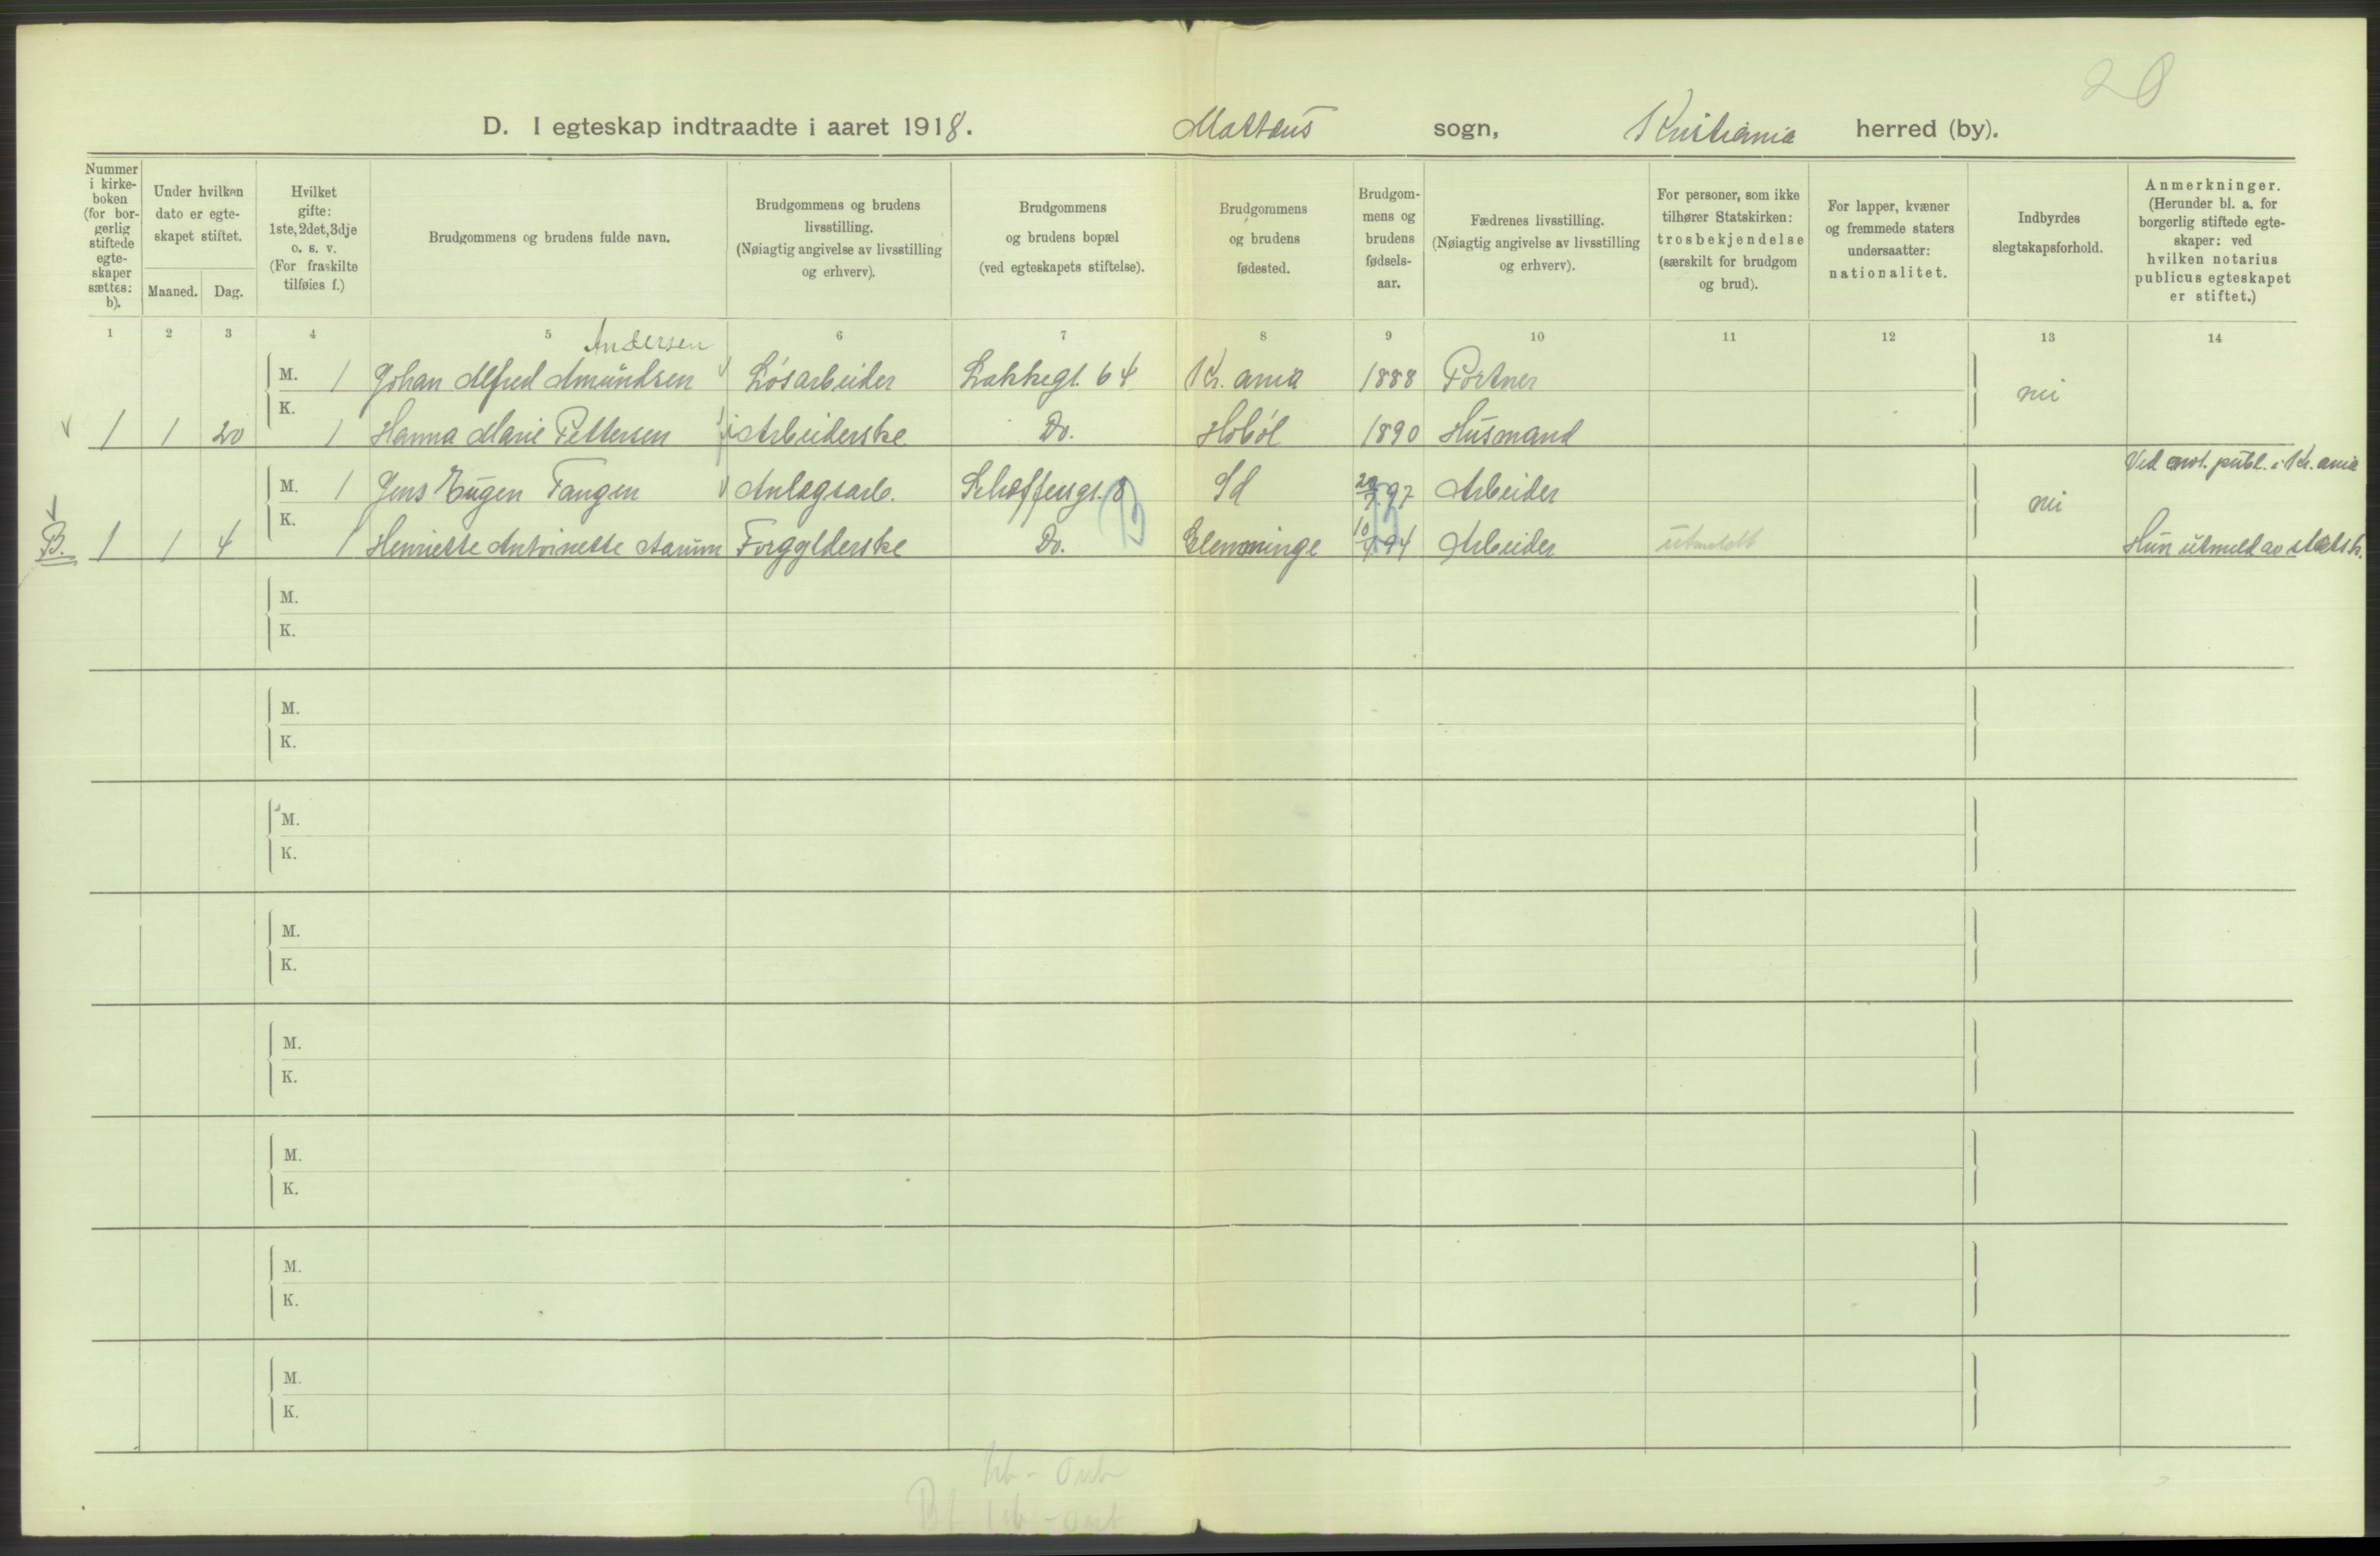 20
D. I egteskap indtraadte i aaret 1918. Mattæus sogn, Kristiania herred (by).
Nummer i kirkeboken (for borgerlig stiftede egteskaper sættes: b).
Under hvilken dato er egteskapet stiftet.
Maaned. Dag.
Hvilket gifte: 1ste, 2det, 3dje o. s. v. (For fraskilte tilføies f.)
Brudgommens og brudens fulde navn.
Brudgommens og brudens livsstilling. (Nøiagtig angivelse av livsstilling og erhverv).
Brudgommens og brudens bopæl (ved egteskapets stiftelse).
Brudgommens og brudens fødested.
Brudgommens og brudens fødselsaar.
Fædrenes livsstilling. (Nøiagtig angivelse av livsstilling og erhverv).
For personer, som ikke tilhører Statskirken: trosbekjendelse (særskilt for brudgom og brud).
For lapper, kvæner og fremmede staters undersaatter: nationalitet.
Indbyrdes slegtskapsforhold.
Anmerkninger. (Herunder bl. a. for borgerlig stiftede egteskaper: ved hvilken notarius publicus egteskapet er stiftet.)
1 2 3 4 5 6 7 8 9 10 11 12 13 14
Andersen
M. 1 Johan Alfred Amundsen Løsarbeider Lakkegt. 64 Kr.ania 1888 Portner
nei
K. 1 1 20 1 Hanna Marie Pettersen Arbeiderske Do. Hobøl 1890 Husmand
Ved not. publ. i Kr.ania
M. 1 Jens Eugen Tangen Anlægsarb. Schæffersgt. 8 Sd 97 Arbeider
nei
K. B. 1 1 4 1 Henriette Antoinette Aarum Forgylderske Do. Glemminge 10/4 94 Arbeider utmeldt Hun utmeld av statsk.
M.
K.
M.
K.
M.
K.
M.
K.
M.
K.
M.
K.
M.
K.
M.
K.